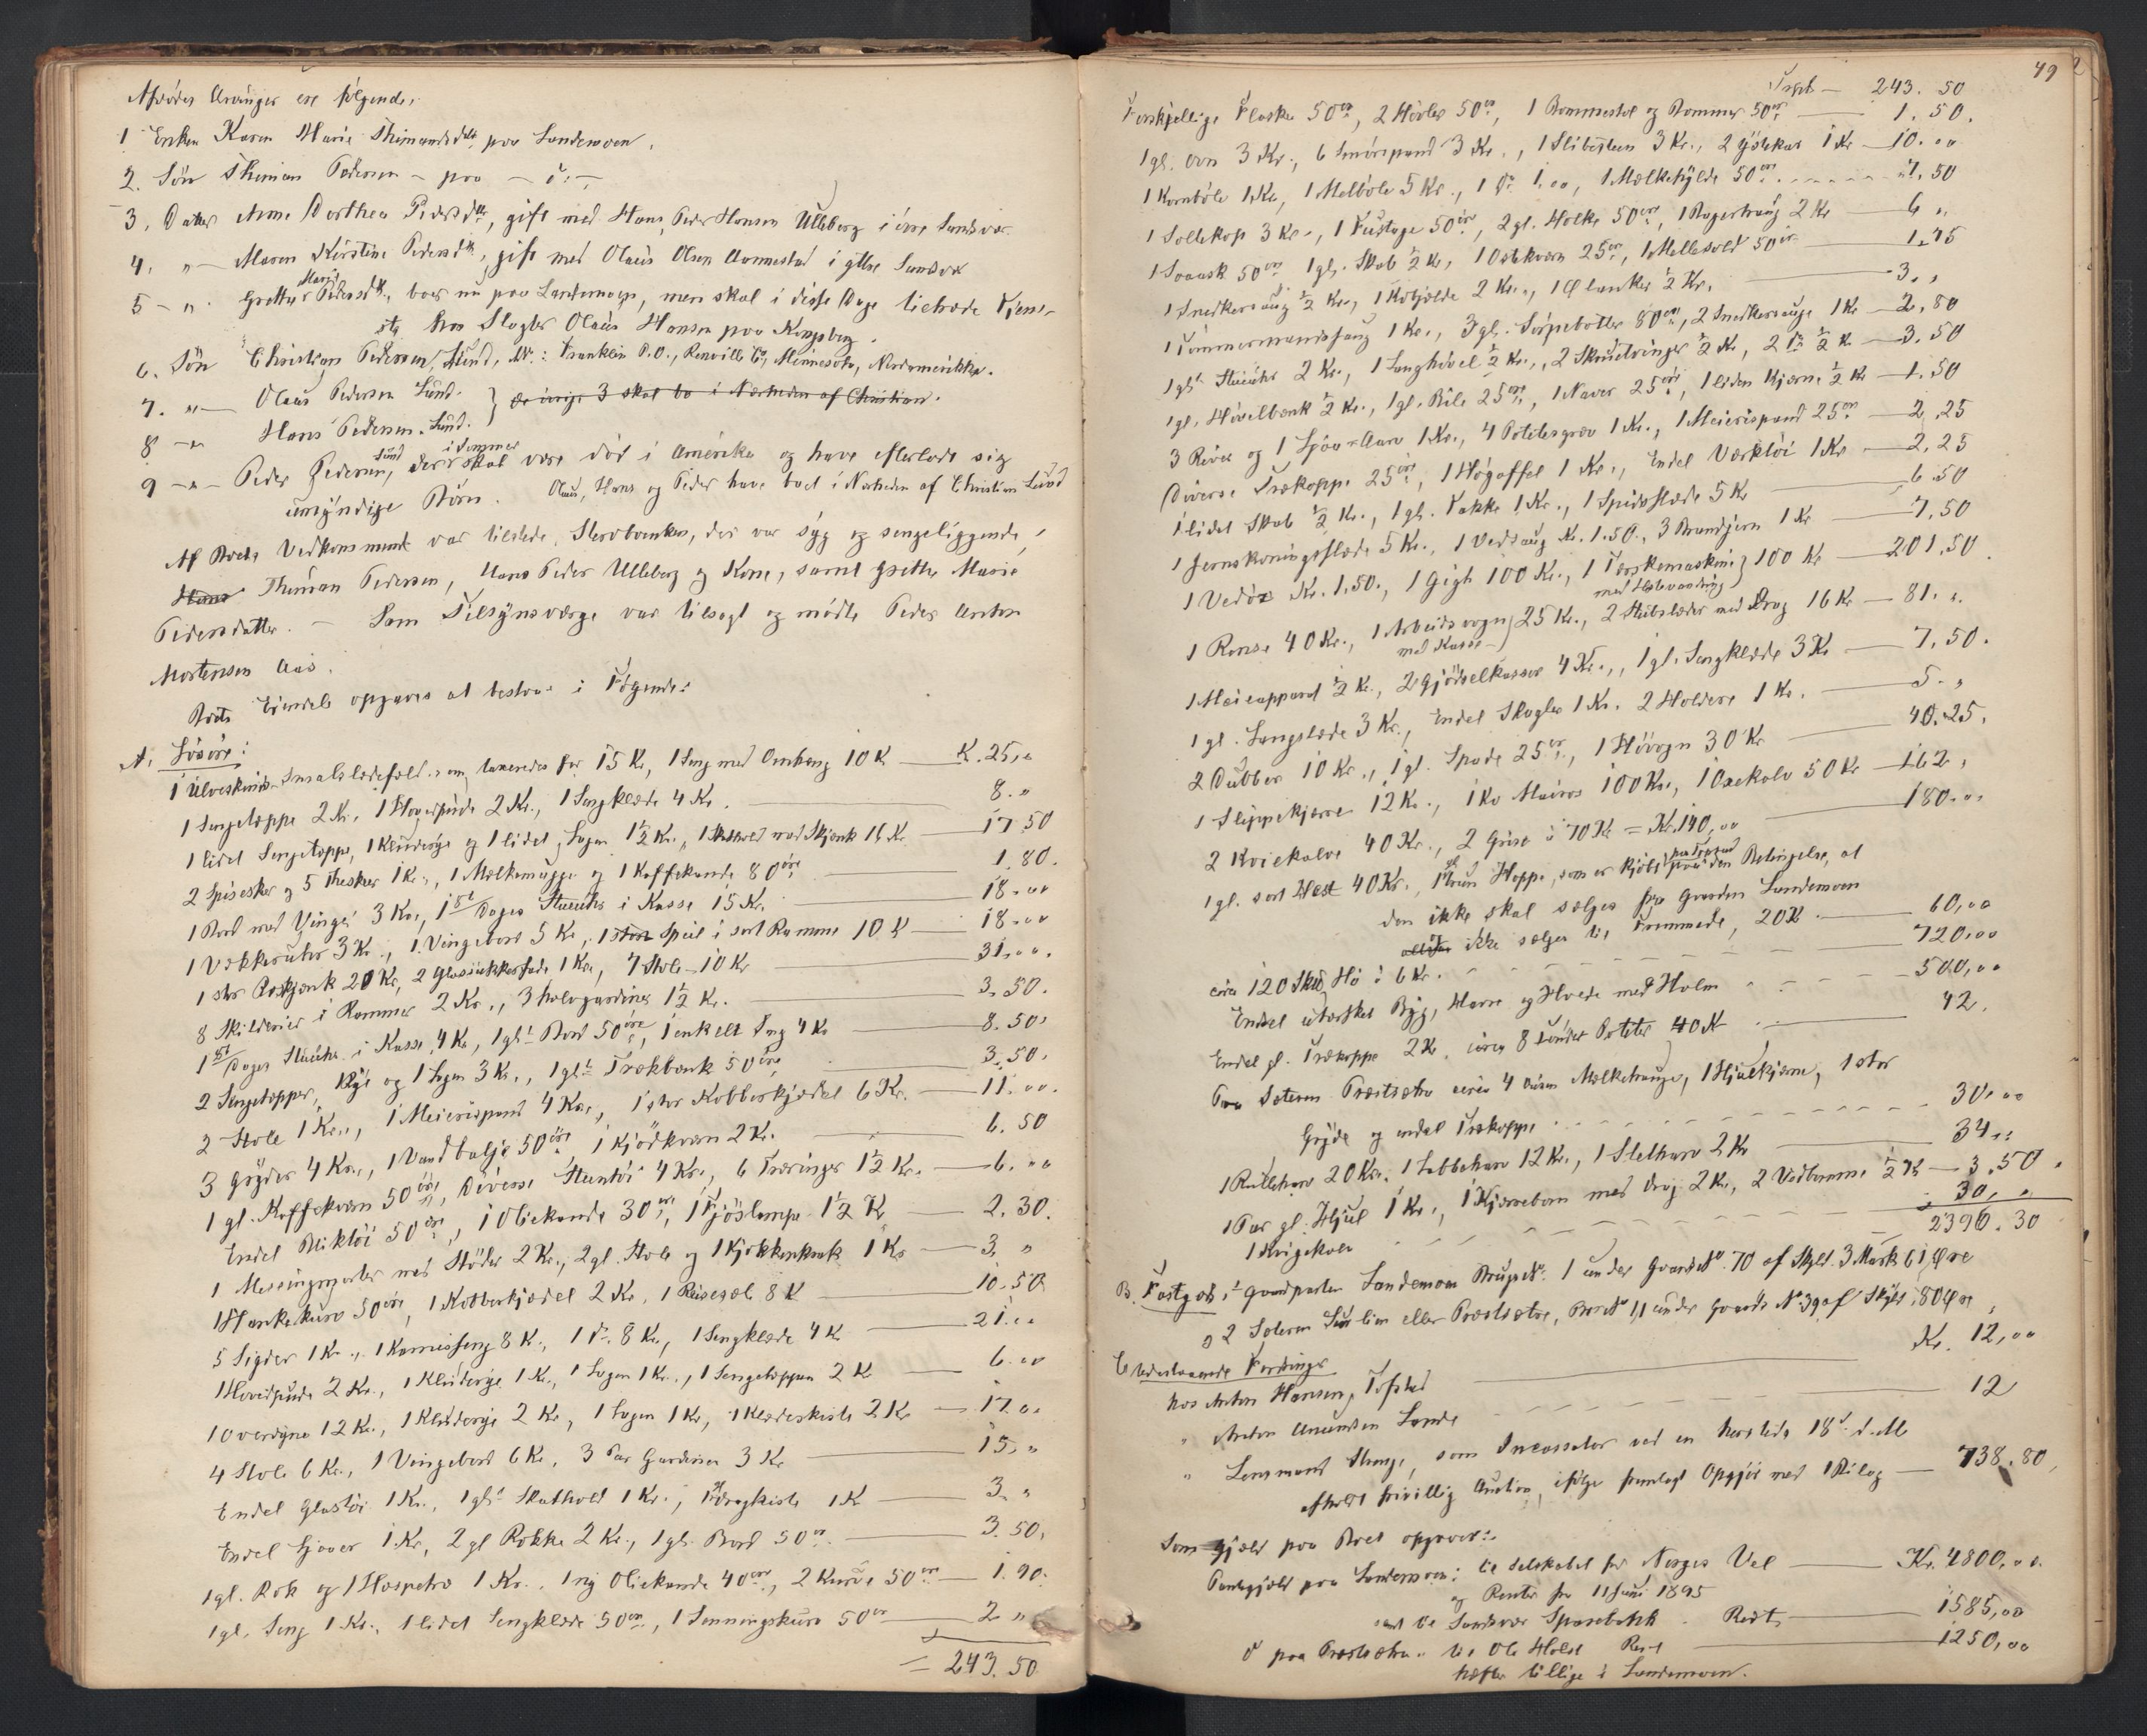 Afdødes Arvinger ere følgende:
1 Enken Karen Marie Thimansdtr. paa Landemoen.
2. Søn Thiman Pedersen – paa – do –
3. Datter Anne Dorthea Pedersdtr, gift med Hans Peder Hansen Ulleberg i øvre Sandsvær
4. " — Maren Kirstine Pedersdtr, gift med Olaus Olsen Aannestad i ytre Sandsvær
5 – " Grethe Marie Pedersdtr, boer nu paa Landemoen, men skal i disse Dage tiltræde Tjene-
ste hos Slagter Olaus Hansen paa Kongsberg.
6. Søn Christian Pedersen Lund, Adr.: Franklin P.O., Renville Co, Minnesota, Nordamerikka.
7. " — Olaus Pedersen Lund. } de øvrige 3 skal bo i Nærheden af Christian.
8 – " Hans Pedersen Lund.
9 – " – Peder Pedersen Lund, der i Sommer skal være død i Amerika og have efterladt sig
umyndige Børn. Olaus, Hans og Peder have boet i Nærheden af Christian Lund
Af Boets Vedkommende var tilstede, Stervboenken, der var syg og sengeliggende,
Hans Thiman Pedersen, Hans Peder Ulleberg og Kone, samt Grethe Marie
Pedersdatter. – Som Tilsynsværge var tilsagt og mødte Peder Anton
Mortensen Aas.
Boets Eiendele opgaves at bestaa i Følgende:
A. Løsøre:
1 Ulveskinds Smalslædefeld, som taxeredes for 15 Kr, 1 Seng med Omhæng 10 K — K. 25,"
1 Sengetæppe 2 Kr. 1 Hovedpude 2 Kr., 1 Sengklæde 4 Kr. — 8. "
1 lidet Sengetæppe, 1 Klædesrye og 1 lidet Lagen 1½ Kr., 1 Skathold med Skjænk 16 Kr — 17.50
2 Spiseskeer og 5 Theskeer 1 Kr., 1 Mælkemugge og 1 Kaffekande 80 øre — 1.80.
1 Bord med Vinger 3 Kr., 1 8t Dages Stueuhr i Kasse 15 Kr. — 18."
1 Vækkeruhr 3 Kr., 1 Vingebord 5 Kr, 1 stor Speil i sort Ramme 10 K — 18."
1 stor Bordskjænk 20 Kr, 2 Glassukkerfade 1 Kr, 7 Stole – 10 Kr — 31."
8 Skilderier i Rammer 2 Kr., 3 halvgardiner 1½ Kr. — 3.50.
1 8t Dages Stueuhr i Kasse 4 Kr, 1 glt Bord 50 øre, 1 enkelt Seng 4 Kr — 8.50.
2 Sengetæpper, 1 Rye og 1 Lagen 3 Kr., 1 glt Trækbænk 50 øre — 3.50.
2 Stole 1 Kr., 1 Meierispand 4 Kr., 1 stor Kobberkjædel 6 Kr. — 11.".
3 Gryder 4 Kr., 1 Vandbalje 50 øre 1 Kjødkværn 2 Kr. — 6.50
1 gl. Kaffekværn 50 øre, Diverse Stentøi 4 Kr., 6 Træringer 1½ Kr. — 6."
Endel Bliktøi 50 øre, 1 Oliekande 30 øre, 1 Fjøslampe 1½ K — 2.30.
1 Messingmorter med Støder 2 Kr., 2 gl. Stole og 1 Kjøkkenkrak 1 Kr — 3. "
1 Hankekurv 50 øre, 1 Kobberkjædel 2 Kr, 1 Reisesæl 8 K — 10.50
5 Sigder 1 Kr., 1 Karnisseng 8 K., 1 do. 8 Kr., 1 Sengklæde 4 K — 21."
1 Hovedpude 2 Kr., 1 Klædesrye 1 Kr., 1 Lagen 1 Kr., 1 Sengetæppe 2 K — 6."
1 Overdyne 12 Kr., 1 Klædesrye 2 Kr, 1 Lagen 1 Kr, 1 Klædeskiste 2 Kr — 17."
4 Stole 6 Kr., 1 Vingebord 6 Kr, 3 Par Gardiner 3 Kr — 15."
Endel Glastøi 1 Kr., 1 glt Skathold 1 Kr., 1 gl Dragkiste 1 K — 3. "
Endel Tjaaer 1 Kr, 2 gl Rokke 2 Kr., 1 glt Bord 50 ør. — 3.50.
1 gl. Rok og 1 Haspetræ 1 Kr., 1 ny Oliekande 40 øre, 2 Kurve 50 øre — 1.90.
1 gl. Seng 1 Kr., 1 lidet Sengklæde 50 øre, 1 Senningskurv 50 ør — 2 "
= 243.50
49
Trspt — 243.50
Forskjellige Flasker 50 ør, 2 Høvler 50 ør, 1 Brommestol og Brommer 50 ør — 1.50.
1 gl. Ovn 3 Kr., 6 Smørspand 3 Kr., 1 Slibesteen 3 Kr., 2 Gjærekar 1 Kr — 10."
1 Kornbøle 1 Kr, 1 Melbøle 5 Kr., 1 do 1.", 1 Mælkehylde 50 øre — 7.50
1 Soldekop 3 Kr., 1 Fustage 50 øre, 2 gl. Holke 50 øre, 1 Bagertraug 2 Kr — 6 "
1 Soaask 50 øre, 1 gl. Skab ½ Kr, 1 Ostekværn 25 ør, 1 Mellesold 50 ør — 1.75
1 Snedkersaug ½ Kr., 1 Kobjælde 2 Kr., 1 Øllanker ½ Kr. — 3."
1 Tømmermandssaug 1 Kr., 3 gl. Sirpebøtter 80 øre, 2 Snedkersauge 1 Kr — 2.80
1 glt Stueuhr 2 Kr., 1 Langhøvel ½ Kr., 2 Skruetvinger ½ Kr, 2 do ½ K — 3.50
1 gl. Høvelbænk ½ Kr., 1 gl. Bile 25 øre, 1 Naver 25 øre, 1 liden Kjærne ½ Kr — 1.50
3 River og 1 Ljaa-Aarv 1 Kr., 4 Potetesgrev 1 Kr., 1 Meierispand 25 ør — 2.25
Diverse Trækopper 25 øre, 1 Høgaffel 1 Kr., Endel Værktøi 1 Kr — 2.25
1 lidet Skab ½ Kr., 1 gl. Takke 1 Kr., 1 Spidsslæde 5 Kr — 6.50
1 Jernskoningsslæde 5 Kr., 1 Vedsaug Kr. 1.50., 3 Brændjern 1 Kr — 7.50
1 Vedøx Kr. 1.50., 1 Gigh 100 Kr., 1 Tærskemaskine med Hestevandring } 100 Kr — 201.50.
1 Rense 40 Kr., 1 Arbeidsvogn med Kasse } 25 Kr., 2 Stubslæder med Drag 16 Kr — 81."
1 Meieapparat ½ K., 2 Gjødselkasser 4 Kr., 1 gl. Sengklæde 3 Kr — 7.50.
1 gl. Langslæde 3 Kr, Endel Skagler 1 Kr. 2 Holdere 1 Kr. — 5."
2 Dubber 10 Kr., 1 gl. Spade 25 ør, 1 Høvogn 30 Kr — 40.25.
1 Slippekjærre 12 Kr., 1 Ko Mairos 100 Kr., 1 Oxekalv 50 Kr — 162."
2 Kviekalve 40 Kr., 2 Grise à 70 Kr = Kr. 140,"" — 180."
1 gl. sort Hest 40 Kr., 1 gl brun Hoppe, som er kjøbt paa den Betingelse, at
den ikke skal sælges fra Gaarden Landemoen
eller ikke sælges til Fremmede, 20 K — 60,"
circa 120 Skpd Hø à 6 Kr. — 720,"
Endel utærsket Byg, Havre og Hvede med Halm — 500,"
Endel gl. Trækopper 2 Kr. circa 8 Tønder Poteter 40 K — 42.
Paa Sæteren Præstsætra circa 4 dusin Mælketrauge, 1 Hjulkjærne, 1 stor
Gryde og endel Trækopper — 30."
1 Rulleharv 20 Kr. 1 Labbeharv 12 Kr., 1 Sletharv 2 Kr — 34.".
1 Par gl. Hjul 1 Kr., 1 Kjærrebom med drag 2 Kr, 2 Vedbomme ½ K — 3.50.
1 Kvigekalv — 30,"
2396.30
B. Fastgods: 1 Gaardparten Landemoen Brugs No. 1 under Gaards No. 70 af Skyld 3 Mark 61 Øre
og 2 Sæteren Lurlien eller Præstsætre, Brs No 11 under Gaards No 39 af Skyld 80 Øre.
C. Udestaaende Fordringer
hos Anton Hansen Tofstad — Kr. 12,"
" Anton Amundsen Lande — 12
" Lensmand Stenge, som Incassator ved en her i Stede 18d. d. M
afholdt frivillig Auction, ifølge fremlagt Opgjør med 1 Bilag — 738.80.
Som Gjæld paa Boet opgaves:
Pantegjæld paa Landemoen: til Selskabet for Norges Vel — Kr. 4800."
og Renter fra 11 Juni 1895
samt til Sandsvær Sparebank – Rest — 1585,"
do paa Præstsætra til Ole Holst Rest — 1250,"
hæfter tillige i Landemoen.